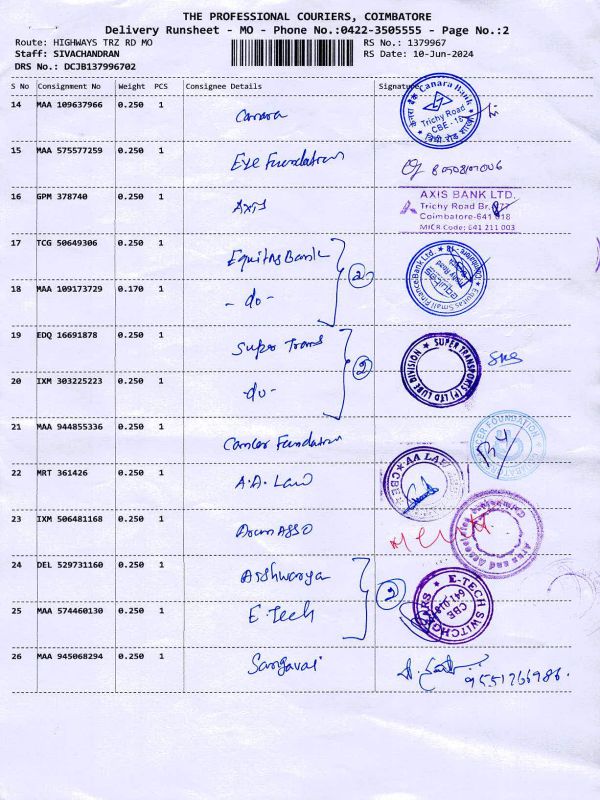 THE PROFESSIONAL COURIERS, COIMBATORE
Delivery Runsheet - MO - Phone No.:0422-3505555 - Page No.:2
Route: HIGHWAYS TRZ RD MO
RS No.: 1379967
Staff: SIVACHANDRAN
RS Date: 10-Jun-2024
DRS No.: DCJB137996702
S No Consignment No Weight PCS Consignee Details Signature
14 MAA 109637966 0.250 1 Canara
Canara Bank
Trichy Road
CBE - 18
15 MAA 575577259 0.250 1 Eye Foundation
16 GPM 378740 0.250 1 AXIS
AXIS BANK LTD.
Trichy Road Br.
Coimbatore-641 018
MICR Code: 641 211 003
17 TCG 50649306 0.250 1 Equitas Bank
18 MAA 109173729 0.170 1 - do -
2
Equitas Small Finance Bank Ltd
19 EDQ 16691878 0.250 1 Super Trans
20 IXM 303225223 0.250 1 - do -
2
SUPER TRANSPORTS (P) LTD LUBE DIVISION
21 MAA 944855336 0.250 1 Cancer Fundation
CER FOUNDATION
22 MRT 361426 0.250 1 A.A. Law
AA LAW
CBE
23 IXM 506481168 0.250 1 Arun ASSO
Arun and Associates
24 DEL 529731160 0.250 1 Aishwarya
25 MAA 574460130 0.250 1 E.Tech
2
E-TECH SWITCHGEARS
CBE
641 018
26 MAA 945068294 0.250 1 Sangavai
9551266986.